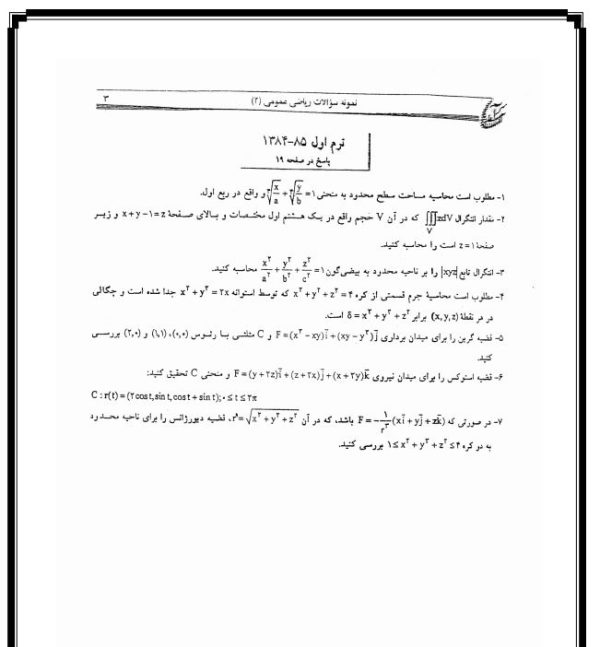 نمونه سؤالات ریاضی عمومی (۲)
۳
ترم اول ۸۵–۱۳۸۴
پاسخ در صفحه ۱۹
۱- مطلوب است محاسبه مساحت سطح محدود به منحنی ∜(x/a) + ∜(y/b) = ۱ و واقع در ربع اول.
۲- مقدار انتگرال ∭_V zdV که در آن V حجم واقع در یک هشتم اول مختصات و بالای صفحهٔ x+y−۱=z و زیر
صفحهٔ z=۱ است را محاسبه کنید.
۳- انتگرال تابع |xyz| را بر ناحیه محدود به بیضی‌گون x²/a² + y²/b² + z²/c² = ۱ محاسبه کنید.
۴- مطلوب است محاسبهٔ جرم قسمتی از کره x²+y²+z²=۴ که توسط استوانه x²+y²=۲x جدا شده است و چگالی
در هر نقطهٔ (x,y,z) برابر δ=x²+y²+z² است.
۵- قضیه گرین را برای میدان برداری F=(x²−xy)i+(xy−y²)j و C مثلثی با رئوس (۰,۰)، (۱,۱) و (۲,۰) بررسی
کنید.
۶- قضیه استوکس را برای میدان نیروی F=(y+۲z)i+(z+۲x)j+(x+۲y)k و منحنی C تحقیق کنید:
C : r(t)=(۲cost,sint,cost+sint);۰≤t≤۲π
۷- در صورتی که F=−(۱/r³)(xi+yj+zk) باشد، که در آن r=√(x²+y²+z²)، قضیه دیورژانس را برای ناحیه محدود
به دو کره ۱≤x²+y²+z²≤۴ بررسی کنید.